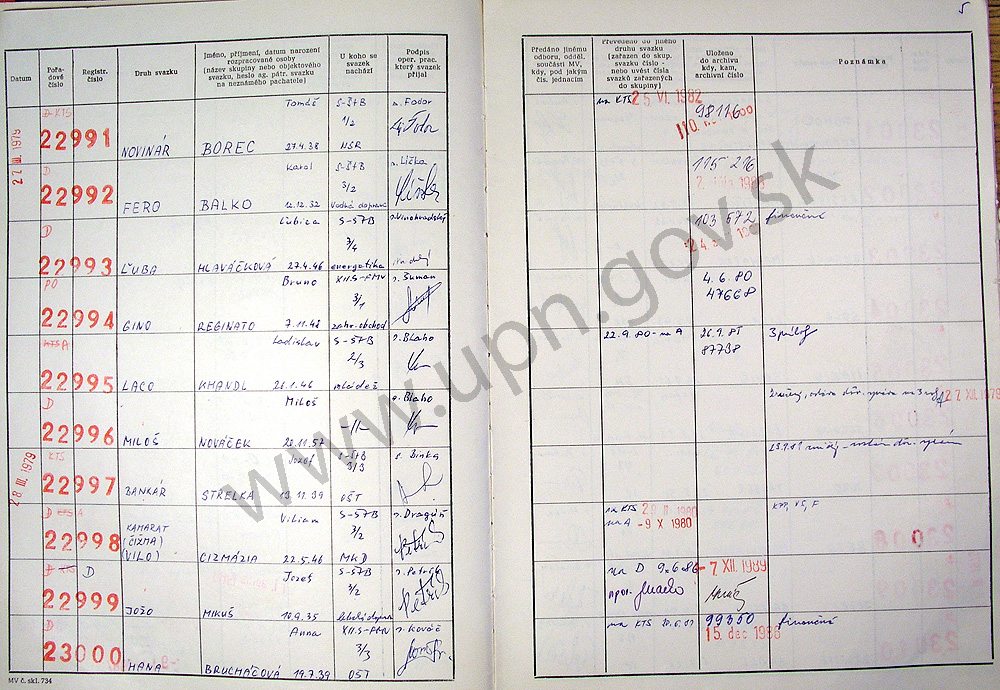 5
Datum
Pořa-
dové
číslo
Registr.
číslo
Druh svazku
Jméno, příjmení, datum narození
rozpracované osoby
(název skupiny nebo objektového
svazku, heslo ag. pátr. svazku
na neznámého pachatele)
U koho se
svazek
nachází
Podpis
oper. prac.
který svazek
přijal
Předáno jinému
odboru, odděl.
součásti MV,
kdy, pod jakým
čís. jednacím
Převedeno do jiného
druhu svazku
(zařazen do skup.
svazku číslo -
nebo uvést čísla
svazků zařazených
do skupiny)
Uloženo
do archivu
kdy, kam,
archivní číslo
Poznámka
27 III. 1979
D KTS
22991
NOVINÁR
Tomáš
BOREC 27.4.38
S-ŠtB
1/2
NSR
n. Fodor
na KTS 25 VI. 1982
98116
D
22992
FERO
Karol
BALKO 12.12.32
S-ŠtB
3/2
Vodná doprava
n. Lička
115 216
D
22993
ĽUBA
Ľubica
HLAVÁČKOVÁ 27.4.46
S-STB
3/4
energetika
n. Vinohradský
103 572
finančné
PO
22994
GINO
Bruno
REGINATO 7.11.48
XII.S-FMV
3/1
zahr. obchod
n. Šuman
4.6.80
47668
KTS A
22995
LACO
Ladislav
KHANDL 26.1.46
S-STB
2/3
mládež
n. Blaho
22.9.80-na A
26.9.85
87738
3 príloh
D
22996
MILOŠ
Miloš
NOVÁČEK 20.11.57
-11-
n. Blaho
27 XII. 1979
28 III. 1979
KTS
22997
BANKÁR
Jozef
STRELKA 13.11.39
S-ŠtB
3/3
OŠT
n. Binka
D KTS A
22998
KAMARAT
(ČIŽMA)
(VILO)
Viliam
CIZMÁZIA 22.5.46
S-STB
3/2
MKD
n. Dragúň
na KTS
na A -9 X 1980
KR, VŠ, F
D KTS D
22999
JOŽO
Jozef
MIKUŠ 10.9.35
S-STB
3/2
n. Petrík
na D 9.6.86
-7 XII. 1989
23000
HANA
Anna
BRUCHÁČOVÁ 19.7.39
XII.S-FMV
3/3
OŠT
n. Kováč
na KTS 10.6.81
99350
15. dec 1986
finančné
MV č. skl. 734
www.upn.gov.sk